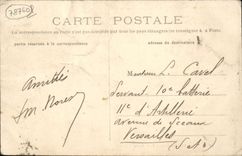 78760
CARTE POSTALE
La correspondance au recto n'est pas acceptée par tous les pays étrangers se renseigner à la Poste
partie réservée à la correspondance
adresse du destinataire
Amitiés
Monsieur L. Cavel
Servant 10e batterie
11e d'Artillerie
avenue de Sceaux
Versailles
(S & O)